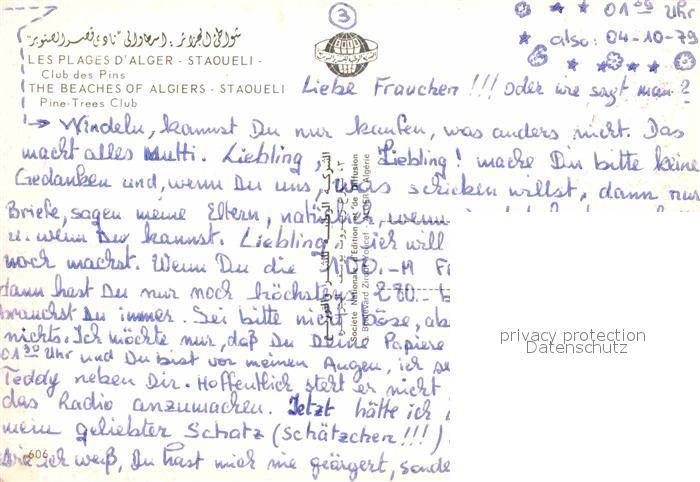 ③
01³⁰ Uhr
also: 04-10-79
LES PLAGES D'ALGER - STAOUELI -
Club des Pins
THE BEACHES OF ALGIERS - STAOUELI
Pine-Trees Club
Liebe Frauchen!!! oder wie sagt man?
→ Windeln, kannst Du nur kaufen, was anders nicht. Das
macht alles Mutti. Liebling, Liebling! mache Dir bitte keine
Gedanken und, wenn Du uns, was schicken willst, dann nur
Briefe, sagen meine Eltern, natürlich, wenn
u. wenn Du kannst. Liebling, ich will
noch machst. Wenn Du die
dann hast Du nur noch höchstens 280.-
brauchst Du immer. Sei bitte nicht böse,
nichts. Ich möchte nur, daß Du Deine Papiere
01³⁰ Uhr und Du bist vor meinen Augen, ich
Teddy neben Dir. Hoffentlich steht er nicht
das Radio anzumachen. Jetzt hätte ich
mein geliebter Schatz (Schätzchen!!!)
ich weiß, Du hast mich nie geärgert,
606
Société Nationale d'Edition et de Diffusion
privacy protection
Datenschutz